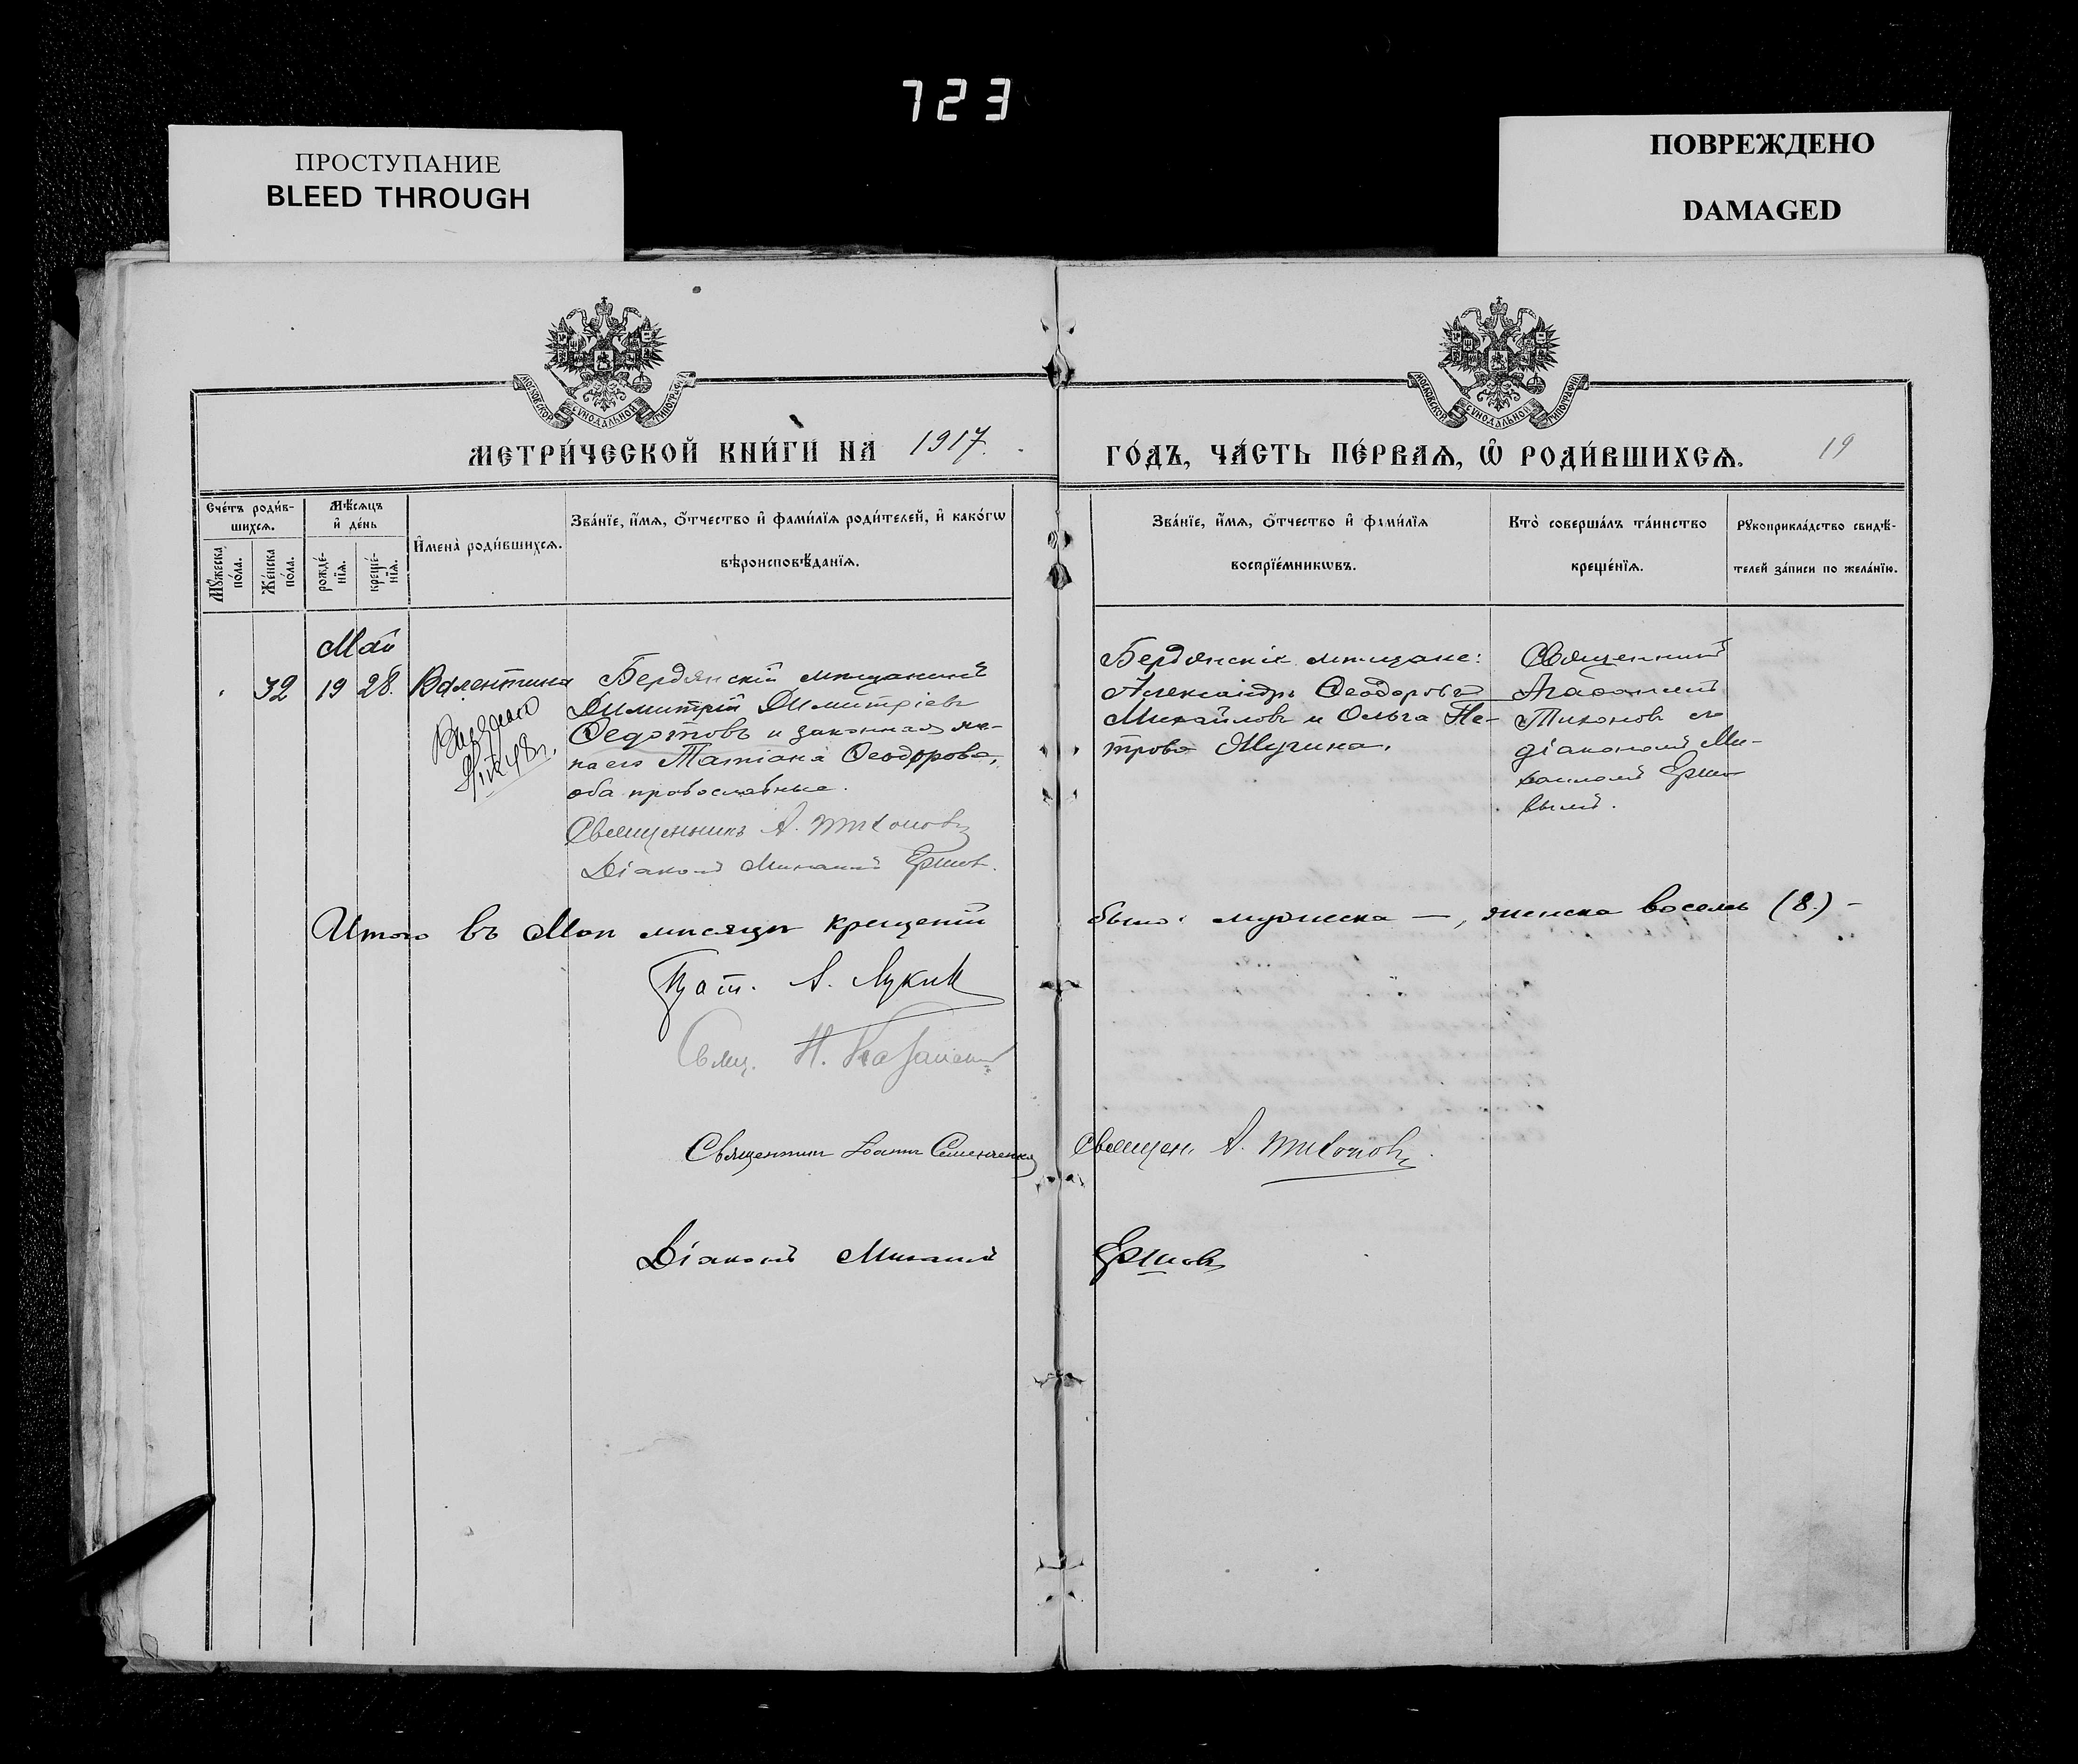 723
ПРОСТУПАНИЕ
BLEED THROUGH
ПОВРЕЖДЕНО
DAMAGED
МОСКОВСКОЙ СѴНОДАЛЬНОЙ ТИПОГРАФІИ
МОСКОВСКОЙ СѴНОДАЛЬНОЙ ТИПОГРАФІИ
МЕТРИ́ЧЕСКОЙ КНИ́ГИ НА 1917.
ГО́ДЪ, ЧА́СТЬ ПЕ́РВАѦ, Ѡ҆ РОДИ́ВШИХСѦ. 19
Сче́тъ роди́в-
шихсѧ.
Мꙋ́жеска
по́ла.
Же́нска
по́ла.
Мѣ́сѧцъ
и҆ де́нь
рожде́-
нїѧ.
креще́-
нїѧ.
И҆мена̀ роди́вшихсѧ.
Зва́нїе, и҆́мѧ, ѻ҆́тчество и҆ фами́лїѧ роди́телей, и҆ како́гѡ
вѣроисповѣ́данїѧ.
Зва́нїе, и҆́мѧ, ѻ҆́тчество и҆ фами́лїѧ
воспрїе́мникѡвъ.
Кто̀ соверша́лъ та́инство
креще́нїѧ.
Рꙋкоприкла́дство свидѣ́-
телей за́писи по жела́нїю.
Май
32 19 28. Валентина
Бердянскій мѣщанинъ
Димитрій Димитріевъ
Федотовъ и законная же-
на его Татіана Феодорова,
оба православные.
Священникъ А. Тихоновъ
Діаконъ Михаилъ Ершов.
Бердянскіе мѣщане:
Александръ Феодоровъ
Михайловъ и Ольга Пе-
трова Мучина.
Священникъ
Агаѳангелъ
Тихоновъ съ
діакономъ Ми-
хаиломъ Ершо
вымъ.
Итого въ Маѣ мѣсяцѣ крещеній было: мужеска —, женска восемь (8) –
А. Лукин
Свящ. Н.
Священникъ Іоаннъ Семенченко
Священ. А. Тихоновъ.
Діаконъ Михаилъ Ершовъ